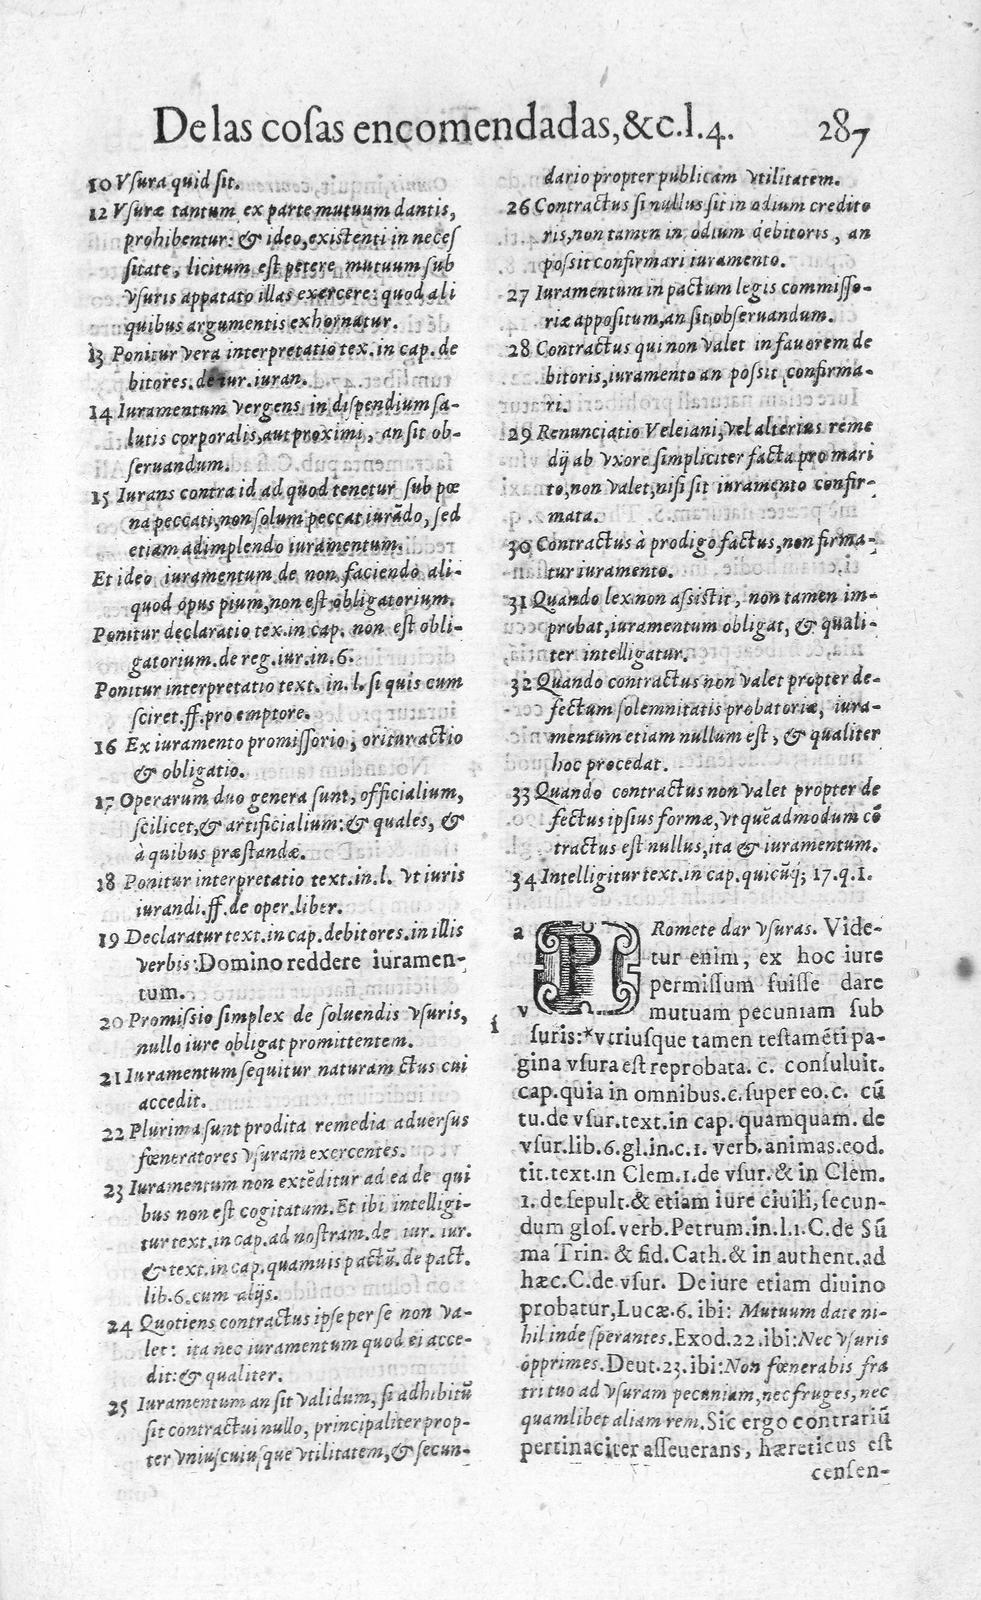 De las cosas encomendadas, &c.l.4. 287
10 Vsura quid sit.
12 Vsuræ tantum ex parte mutuum dantis,
prohibentur: & ideo, existenti in neces
sitate, licitum est petere mutuum sub
vsuris appatato illas exercere: quod ali
quibus argumentis exhornatur.
13 Ponitur vera interpretatio tex. in cap. de
bitores. de iur. iuran.
14 Iuramentum vergens in dispendium sa-
lutis corporalis, aut proximi, an sit ob-
seruandum.
15 Iurans contra id ad quod tenetur sub pœ
na peccati, non solum peccat iurãdo, sed
etiam adimplendo iuramentum.
Et ideo iuramentum de non faciendo ali-
quod opus pium, non est obligatorium.
Ponitur declaratio tex. in cap. non est obli-
gatorium. de reg. iur. in. 6.
Ponitur interpretatio text. in. l. si quis cum
sciret. ff. pro emptore.
16 Ex iuramento promissorio, oritur actio
& obligatio.
17 Operarum duo genera sunt, officialium,
scilicet, & artificialium: & quales, &
à quibus præstandæ.
18 Ponitur interpretatio text. in. l. vt iuris
iurandi. ff. de oper. liber.
19 Declaratur text. in cap. debitores. in illis
verbis: Domino reddere iuramen-
tum.
20 Promissio simplex de soluendis vsuris,
nullo iure obligat promittentem.
21 Iuramentum sequitur naturam actus cui
accedit.
22 Plurima sunt prodita remedia aduersus
fœneratores vsuram exercentes.
23 Iuramentum non extẽditur ad ea de qui
bus non est cogitatum. Et ibi intelligi-
tur text. in cap. ad nostram. de iur. iur.
& text. in cap. quamuis pactũ. de pact.
lib. 6. cum alijs.
24 Quotiens contractus ipse per se non va-
let: ita nec iuramentum quod ei acce-
dit: & qualiter.
25 Iuramentum an sit validum, si adhibitũ
sit contractui nullo, principaliter prop-
ter vniuscuiusque vtilitatem, & secun-
dario propter publicam vtilitatem.
26 Contractus si nullus sit in odium credito
ris, non tamen in odium debitoris, an
possit confirmari iuramento.
27 Iuramentum in pactum legis commisso-
riæ appositum, an sit obseruandum.
28 Contractus qui non valet in fauorem de
bitoris, iuramento an possit confirma-
ri.
29 Renunciatio Veleiani, vel alterius reme
dij ab vxore simpliciter facta pro mari
to, non valet, nisi sit iuramento confir-
mata.
30 Contractus à prodigo factus, non firma-
tur iuramento.
31 Quando lex non assistit, non tamen im-
probat, iuramentum obligat, & quali-
ter intelligatur.
32 Quando contractus non valet propter de-
fectum solemnitatis probatoriæ, iura-
mentum etiam nullum est, & qualiter
hoc procedat.
33 Quando contractus non valet propter de
fectus ipsius formæ, vt quẽadmodum cõ
tractus est nullus, ita & iuramentum.
34 Intelligitur text. in cap. quicũq; 17. q. 1.
a PRomete dar vsuras. Vide-
tur enim, ex hoc iure
permissum fuisse dare
mutuam pecuniam sub v
1 suris: *vtriusque tamen testamẽti pa-
gina vsura est reprobata. c. consuluit.
cap. quia in omnibus. c. super eo. c. cũ
tu. de vsur. text. in cap. quamquam. de
vsur. lib. 6. gl. in. c. 1. verb. animas. eod.
tit. text. in Clem. 1. de vsur. & in Clem.
1. de sepult. & etiam iure ciuili, secun-
dum glos. verb. Petrum. in. l. 1. C. de Sũ
ma Trin. & fid. Cath. & in authent. ad
hæc. C. de vsur. De iure etiam diuino
probatur, Lucæ. 6. ibi: Mutuum date ni-
hil inde sperantes. Exod. 22. ibi: Nec vsuris
opprimes. Deut. 23. ibi: Non fœnerabis fra
tri tuo ad vsuram pecuniam, nec fruges, nec
quamlibet aliam rem. Sic ergo contrariũ
pertinaciter asseuerans, hæreticus est
censen-